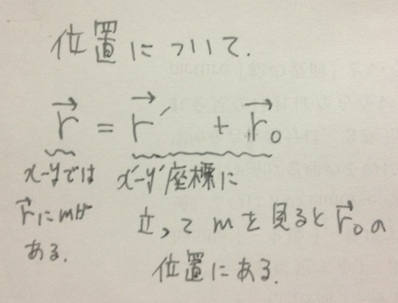 位置について.
r⃗ = r⃗′ + r⃗₀
x-yでは x′-y′座標に
r⃗にmが 立ってmを見るとr⃗₀の
ある. 位置にある.